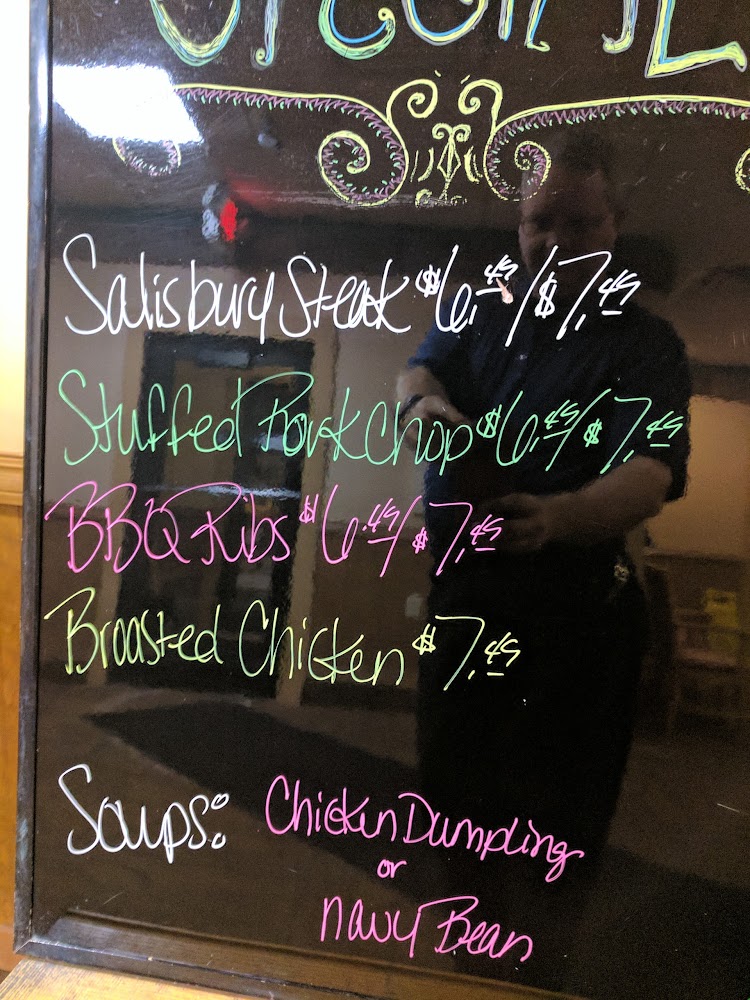 SPECIALS
Salisbury Steak $6.49/$7.49
Stuffed Pork Chop $6.49/$7.49
BBQ Ribs $6.49/$7.49
Broasted Chicken $7.49
Soups: Chickin Dumpling
or
navy Bean